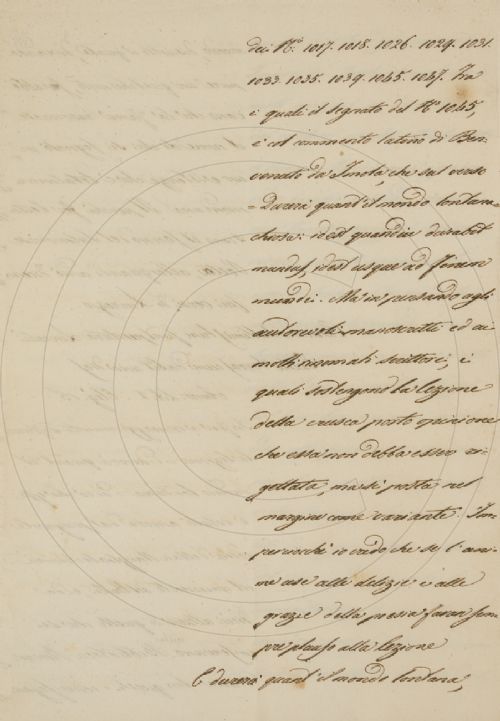 dei N.ri 1017. 1018. 1026. 1029. 1031.
1033. 1035. 1039. 1045. 1047. Tra
i quali il segnato del N.o 1045,
è col commento latino di Ben-
venuto da Imola, che sul verso
= Durerà quant'il mondo lontana =
chiosa: idest quandiu durabit
mundus, idest usque ad finem
mundi. Ma io pensando agli
autorevoli manoscritti ed ai
molti rinomati scrittori, i
quali sostengono la lezione
della crusca porto opinione
che essa non debba essere ri-
gettata, ma si posta nel
margine come variante. Im-
perciochè io credo che se l'ani-
me use alle delizie e alle
grazie della poesia faran sem-
pre plauso alla lezione
E durerà quant'il mondo lontana,